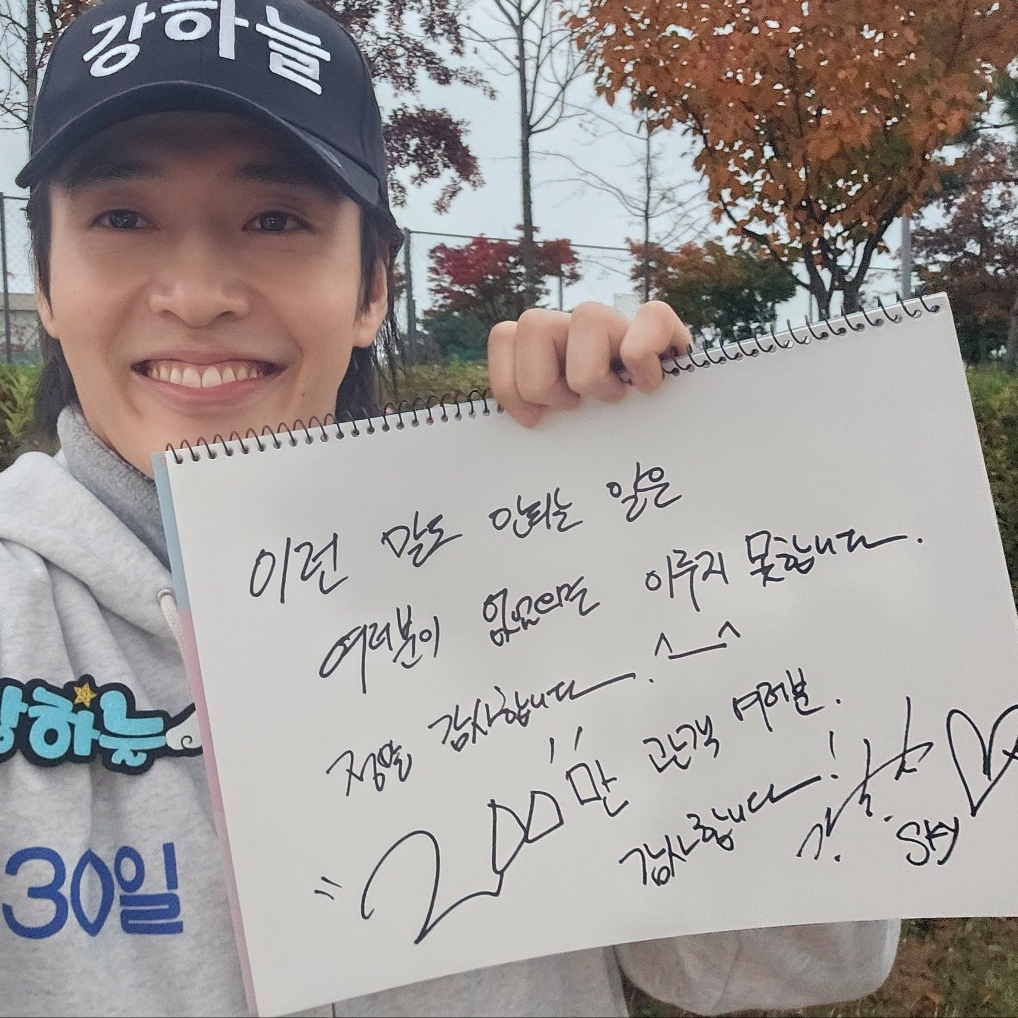 강하늘
이런 말도 안되는 일은
여러분이 없으면 이루지 못합니다.
정말 감사합니다. ^__^
"200만" 관객 여러분.
감사합니다!
Sky
강하늘
30일